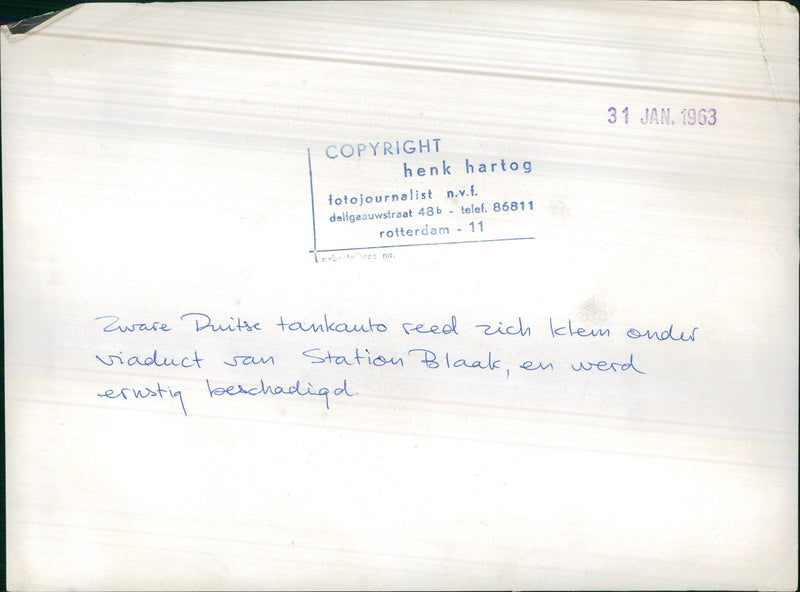 31 JAN. 1963
COPYRIGHT
henk hartog
fotojournalist n.v.f.
delfgaauwstraat 48b - telef. 86811
rotterdam - 11
no.
Zware Duitse tankauto reed zich klem onder
viaduct van Station Blaak, en werd
ernstig beschadigd.